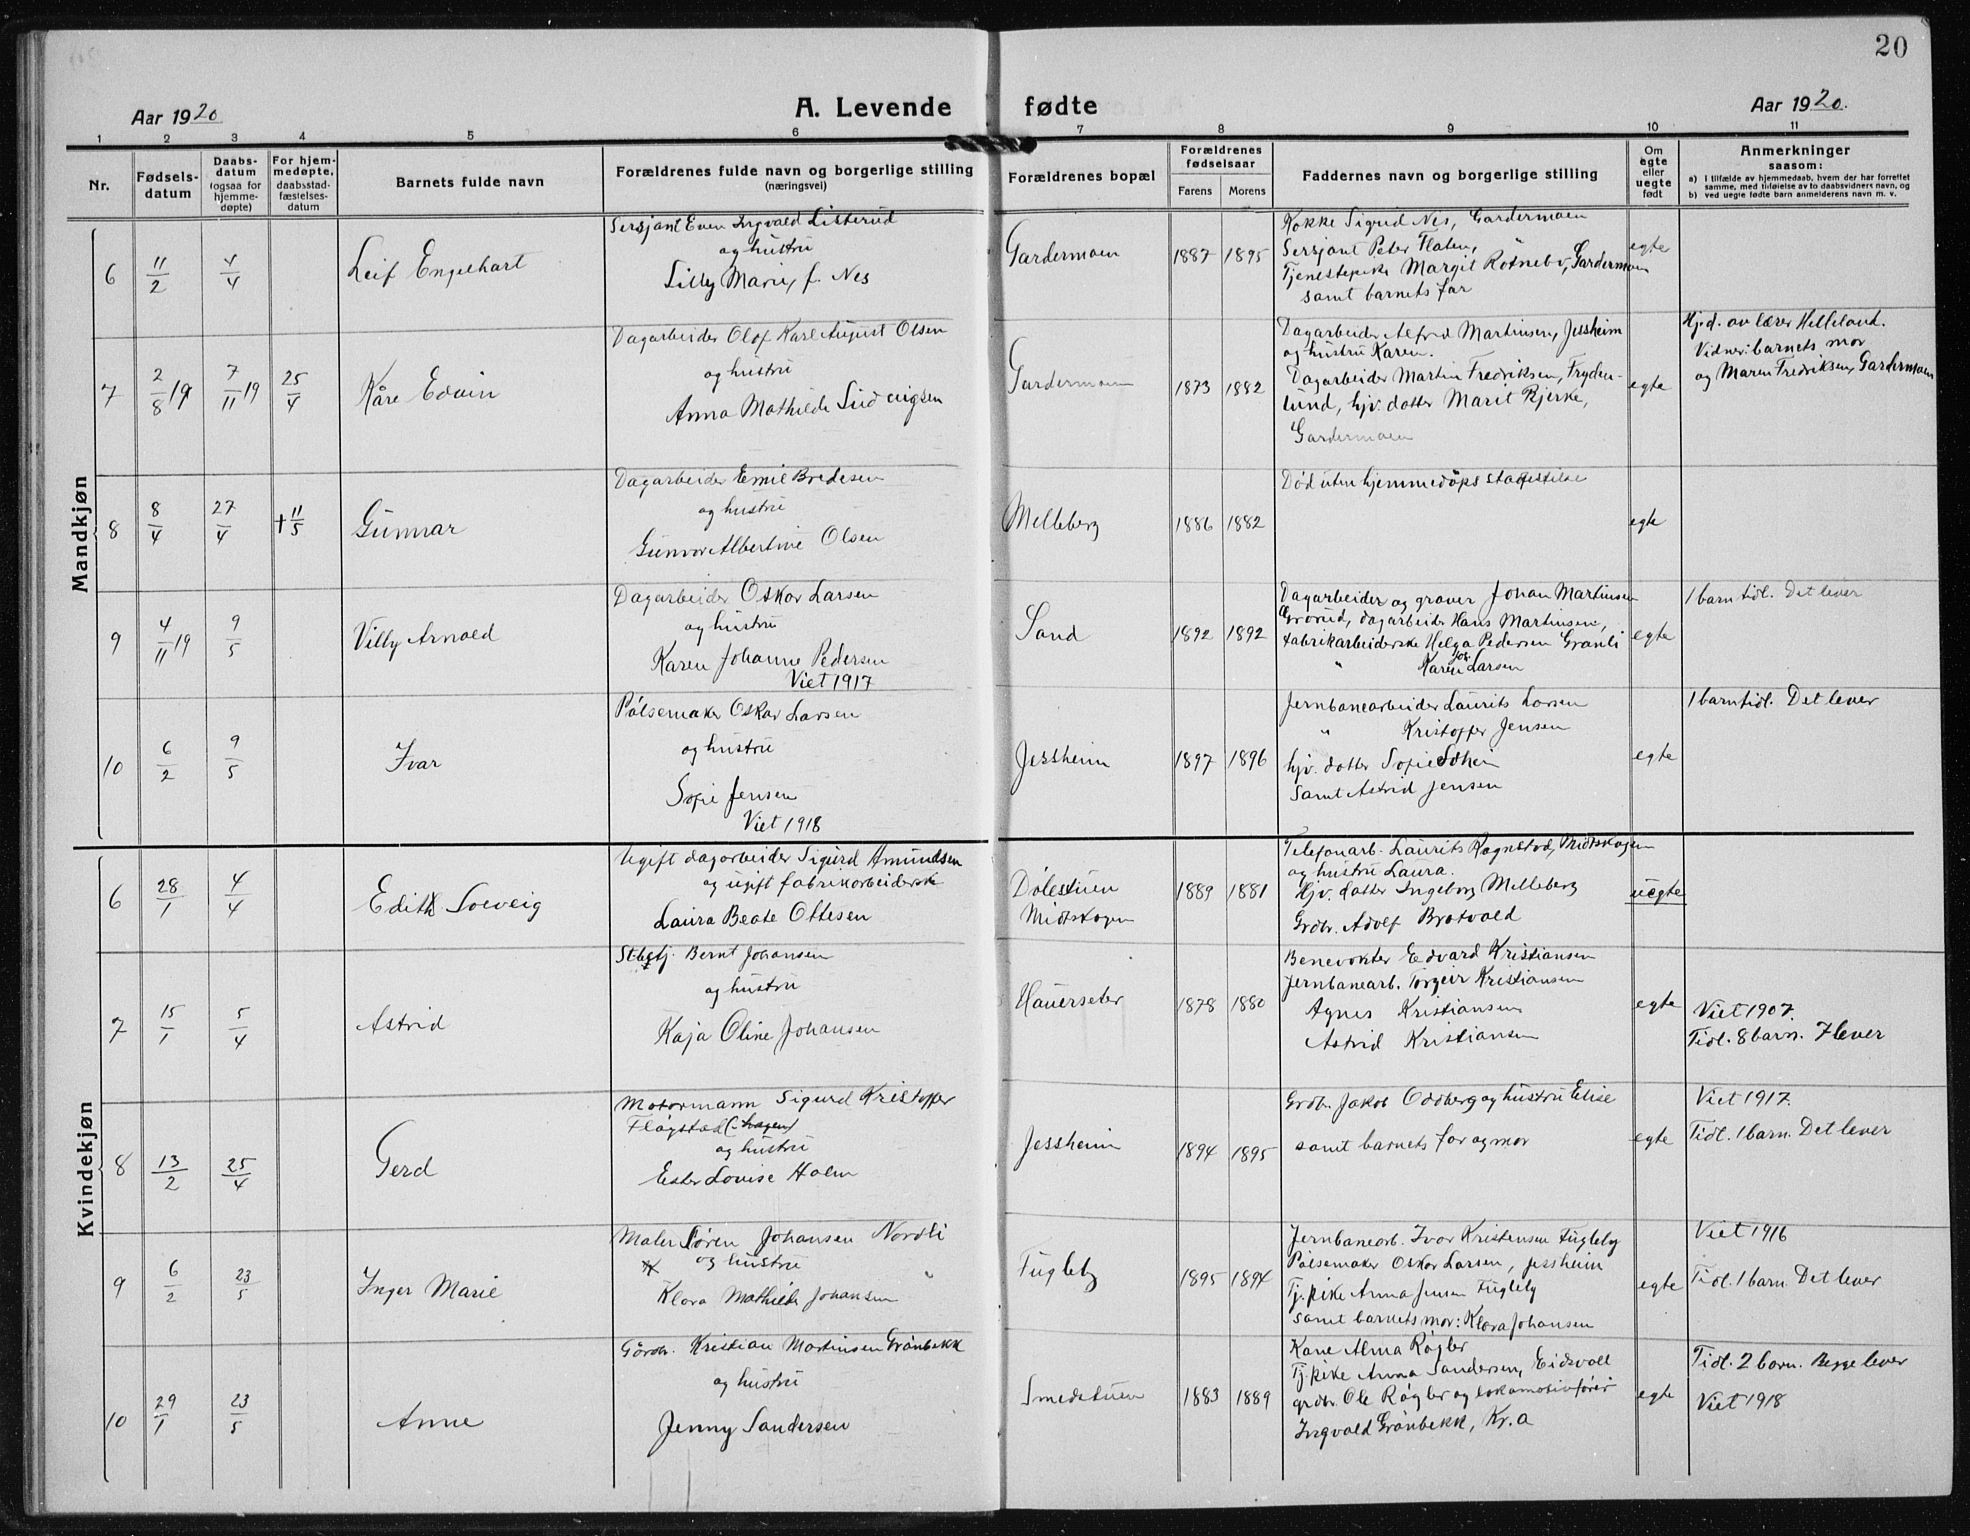 20
Aar 1920
A. Levende fødte
Aar 1920.
1 2 3 4 5 6 7 8 9 10 11
Nr.
Fødsels-
datum
Daabs-
datum
(ogsaa for
hjemme-
døpte)
For hjem-
medøpte,
daabsstad-
fæstelses-
datum
Barnets fulde navn
Forældrenes fulde navn og borgerlige stilling
(næringsvei)
Forældrenes bopæl
Forældrenes
fødselsaar
Farens Morens
Faddernes navn og borgerlige stilling
Om
egte
eller
uegte
født
Anmerkninger
saasom:
a) I tilfælde av hjemmedaab, hvem der har forrettet
samme, med tilføielse av to daabsvidners navn, og
b) ved uegte fødte barn anmelderens navn m. v.
Mandkjøn
6
11/2
4/4
Leif Engelhart
Sersjant Even Ingvald Listerud
og hustru
Lilly Marie, f. Nes
Gardermoen
1887 1895
Kokke Sigrid Nes, Gardermoen
Sersjant Peter Flaten, "
Tjenestepike Margit Rotnebo, Gardermoen
samt barnets far
egte
7
2/8 19
7/11 19
25/4
Kåre Edvin
Dagarbeider Olof Karl August Olsen
og hustru
Anna Mathilde Ludvigsen
Gardermoen
1873 1882
Dagarbeider Alfred Martinsen, Jessheim
og hustru Karen.
Dagarbeider Martin Fredriksen, Fryden-
lund, hjv. datter Marit Bjerke,
Gardermoen
egte
Hjd. av lærer Helleland.
Vidner: barnets mor
og Maren Fredriksen, Gardermoen
8
8/4
27/4
† 11/5
Gunnar
Dagarbeider Emil Bredesen
og hustru
Gunvor Albertine Olsen
Melleberg
1886 1882
Død uten hjemmedøps stadfestelse
egte
9
4/11 19
9/5
Villy Arnold
Dagarbeider Oskar Larsen
og hustru
Karen Johanne Pedersen
Viet 1917
Sand
1892 1892
Dagarbeider og graver Johan Martinsen
Grorud, dagarbeider Hans Martinsen,
fabrikarbeiderske Helga Pedersen Granli
" Karen Joh. Larsen
egte
1 barn tidl. Det lever
10
6/2
9/5
Ivar
Pølsemaker Oskar Larsen
og hustru
Sofie Jensen
Viet 1918
Jessheim
1897 1896
Jernbanearbeider Laurits Larsen
" Kristoffer Jensen
hjv. datter Sofie
Samt Astrid Jensen
egte
1 barn tidl. Det lever
Kvindekjøn
6
28/1
4/4
Edith Solveig
Ugift dagarbeider Sigurd Amundsen
og ugift fabrikarbeiderske
Laura Beate Ottesen
Dølestuen
Midtskogen
1889 1881
Telefonarb. Laurits Rognstad, Midtskogen
og hustru Laura.
Hjv. datter Ingeborg Melleberg
Grdbr. Adolf Brotvald
uegte
7
15/1
5/4
Astrid
Stbetj. Bernt Johansen
og hustru
Kaja Oline Johansen
Hauerseter
1878 1880
Banevokter Edvard Kristiansen
Jernbanearb. Torgeir Kristiansen
Agnes Kristiansen
Astrid Kristiansen
egte
Viet 1907.
Tidl. 8 barn. 7 lever
8
13/2
25/4
Gerd
Motormann Sigurd Kristoffer
Flågstad (: hagen)
og hustru
Ester Lovise Holm
Jessheim
1894 1895
Grdbr. Jakob Odberg og hustru Elise
samt barnets far og mor
egte
Viet 1917.
Tidl. 1 barn. Det lever
9
6/2
23/5
Inger Marie
Maler Søren Johansen Nordli
og hustru
Klara Mathilde Johansen "
Fugleby
1895 1894
Jernbanearb. Ivar Kristensen Fugleby
Pølsemaker Oskar Larsen, Jessheim
Tj. pike Anna Jensen Fugleby
samt barnets mor: Klara Johansen
egte
Viet 1916
Tidl. 1 barn. Det lever
10
29/1
23/5
Anne
Gårdbr. Kristian Martinsen Grønbekk
og hustru
Jenny Sandersen
Smedstuen
1883 1889
Kone Alma Røgler
Tj. pike Anna Sandersen, Eidsvoll
grdbr. Ole Røgler og lokomotivfører
Ingvald Grønbekk, Kr.a
egte
Tidl. 2 barn. Begge lever
Viet 1918